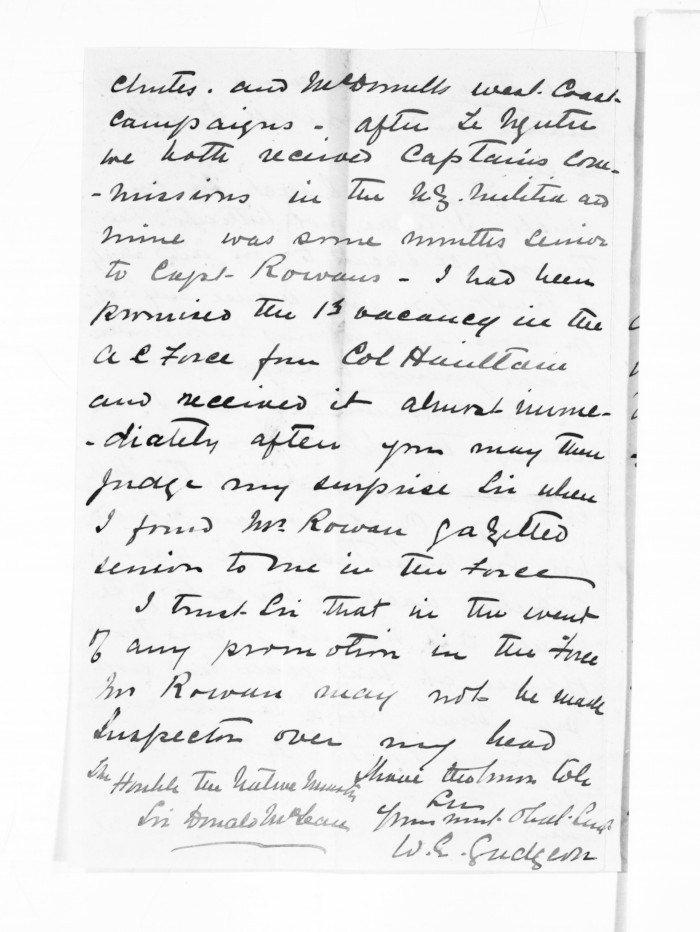 Chutes. and McDonnells west Coast
Campaigns - after Te Ngutu
we both received Captains Com-
-missions in the N.Z. Militia and
mine was some months senior
to Capt Rowans - I had been
promised the 1st vacancy in the
A C Force from Col Haultain
and received it almost imme-
-diately after you may then
judge my surprise Sir when
I found Mr Rowan gazetted
senior to me in the Force
I trust Sir that in the event
of any promotion in the Force
Mr Rowan may not be made
Inspector over my head
I have the honor to be
Sir
Your most Obdt Servt
W. E. Gudgeon
The Honble the Native Minister
Sir Donald McLean